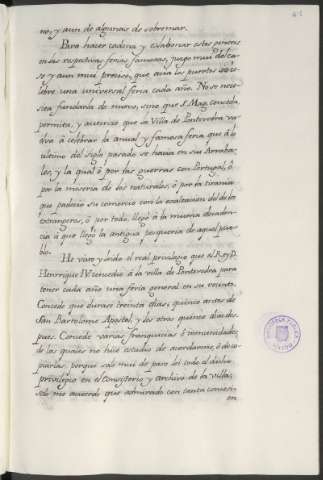 no, y aun de algunas de sobremar.
Para hacer cadena y eslabonar estos puertos
en las respectivas ferias famosas, juzgo mui del ca-
so y aun mui preciso, que aia los puertos se ce-
lebre una universal feria cada año. No se nece-
sita fundarla de nuevo, sino que S. Mag. conceda,
permita, y autorice que la Villa de Pontevedra vu-
elva á celebrar la anual y famosa feria que á lo
ultimo del siglo pasado se hacia en sus Arraba-
les, y la qual ó por las guerras con Portugal, ó
por la miseria de los naturales, ó por la tirania
que padecio su comercio con la exaltacion del de los
extrangeros, ó por todo, llegó á la misma decaden-
cia á que llegó la antigua pesqueria de aquel pue-
blo.
He visto y leido el real privilegio que el Rey D.
Henrique IV concedio á la villa de Pontevedra para
tener cada año una feria general en su recinto.
Concede que durase treinta dias; quince antes de
San Bartolome Apostol, y los otros quince dias des-
pues. Concede varias franquicias é inmunidades
de las quales no hice estudio de acordarme, ó de co-
piarlas, porque salí mui de paso leí todo el dicho
privilegio en el consistorio y archivo de la villa;
solo me acuerdo que admirado con tanta concesi-
on